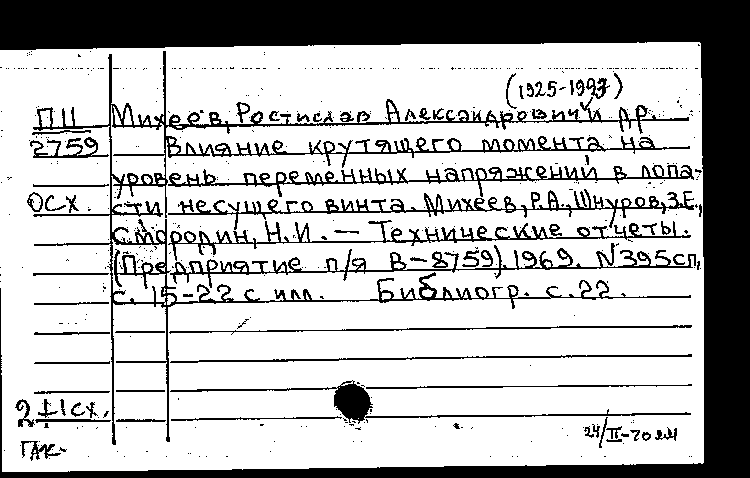 (1925-1993)
П11 Михеев, Ростислав Александрович и др.
2759 Влияние крутящего момента на
уровень переменных напряжений в лопа-
ОСХ. сти несущего винта. Михеев, Р.А., Шнуров, З.Е.,
Смородин, Н.И. — Технические отчеты.
(Предприятие п/я В-8759). 1969. N395сп,
с. 15-22 с илл. Библиогр. с.22.
24/II-70